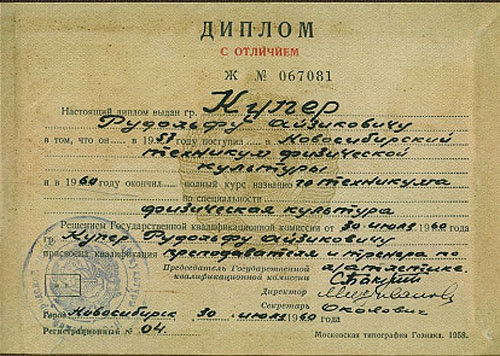 ДИПЛОМ
С ОТЛИЧИЕМ
Ж № 067081
Настоящий диплом выдан гр. Купер
Рудольфу Айзиковичу
в том, что он в 1957 году поступил в Новосибирский
техникум физической
культуры
и в 1960 году окончил полный курс названного техникума
по специальности
физическая культура
Решением Государственной квалификационной комиссии от 30 июля 1960 года
гр. Купер Рудольфу Айзиковичу
присвоена квалификация преподавателя и тренера по
л/атлетике.
Председатель Государственной
квалификационной комиссии
Директор
Секретарь
Город Новосибирск 30 июля 1960 года
Регистрационный № 04.
Московская типография Гознака. 1958.